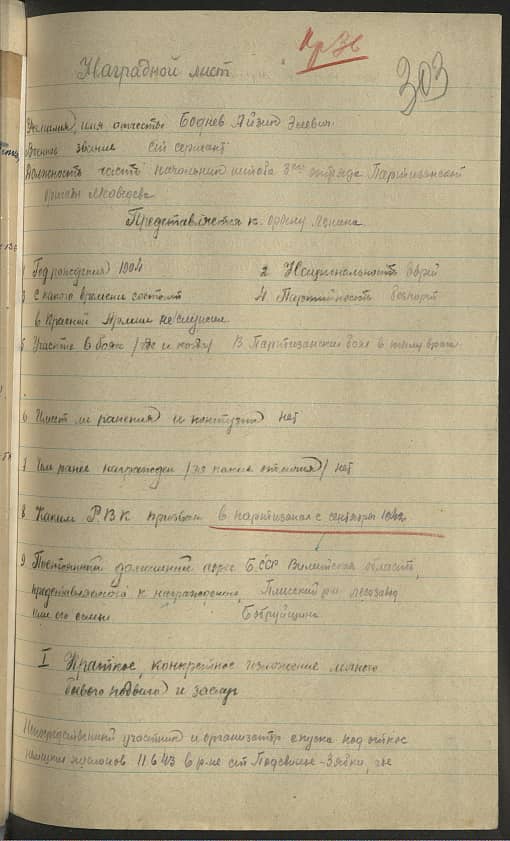 Пр 36
303
Наградной лист
Фамилия, имя отчество Боднев Айзик Элевич
Военное звание ст сержант
Должность часть начальник штаба 3го отряда Партизанской
бригады Медведева
Представляется к ордену Ленина
1 Год рождения 1904 2 Национальность еврей
3 с какого времени состоит 4 Партийность беспарт
в Красной Армии не служил
5 Участие в боях /где и когда/ В Партизанских боях в тылу врага
6 Имеет ли ранения и контузии нет
7 Чем ранее награжден /за какие отличия/ нет
8 Каким Р.В К призван в партизанах с сентября 1942
9 Постоянный домашний адрес БССР Вилейская область,
представляемого к награждению, Плисский р-н лесозавод
или его семьи
I Краткое, конкретное изложение личного
боевого подвига и заслуг
Непосредственный участник и организатор спуска под откос
немецких эшелонов 11.6.43 в р-не ст Подсвилье-Зябки, где